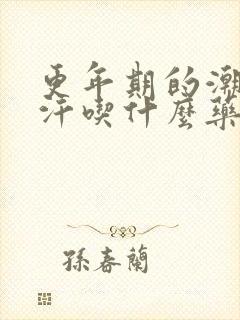 更年期的潮
汗喫什麽藥
孫春蘭